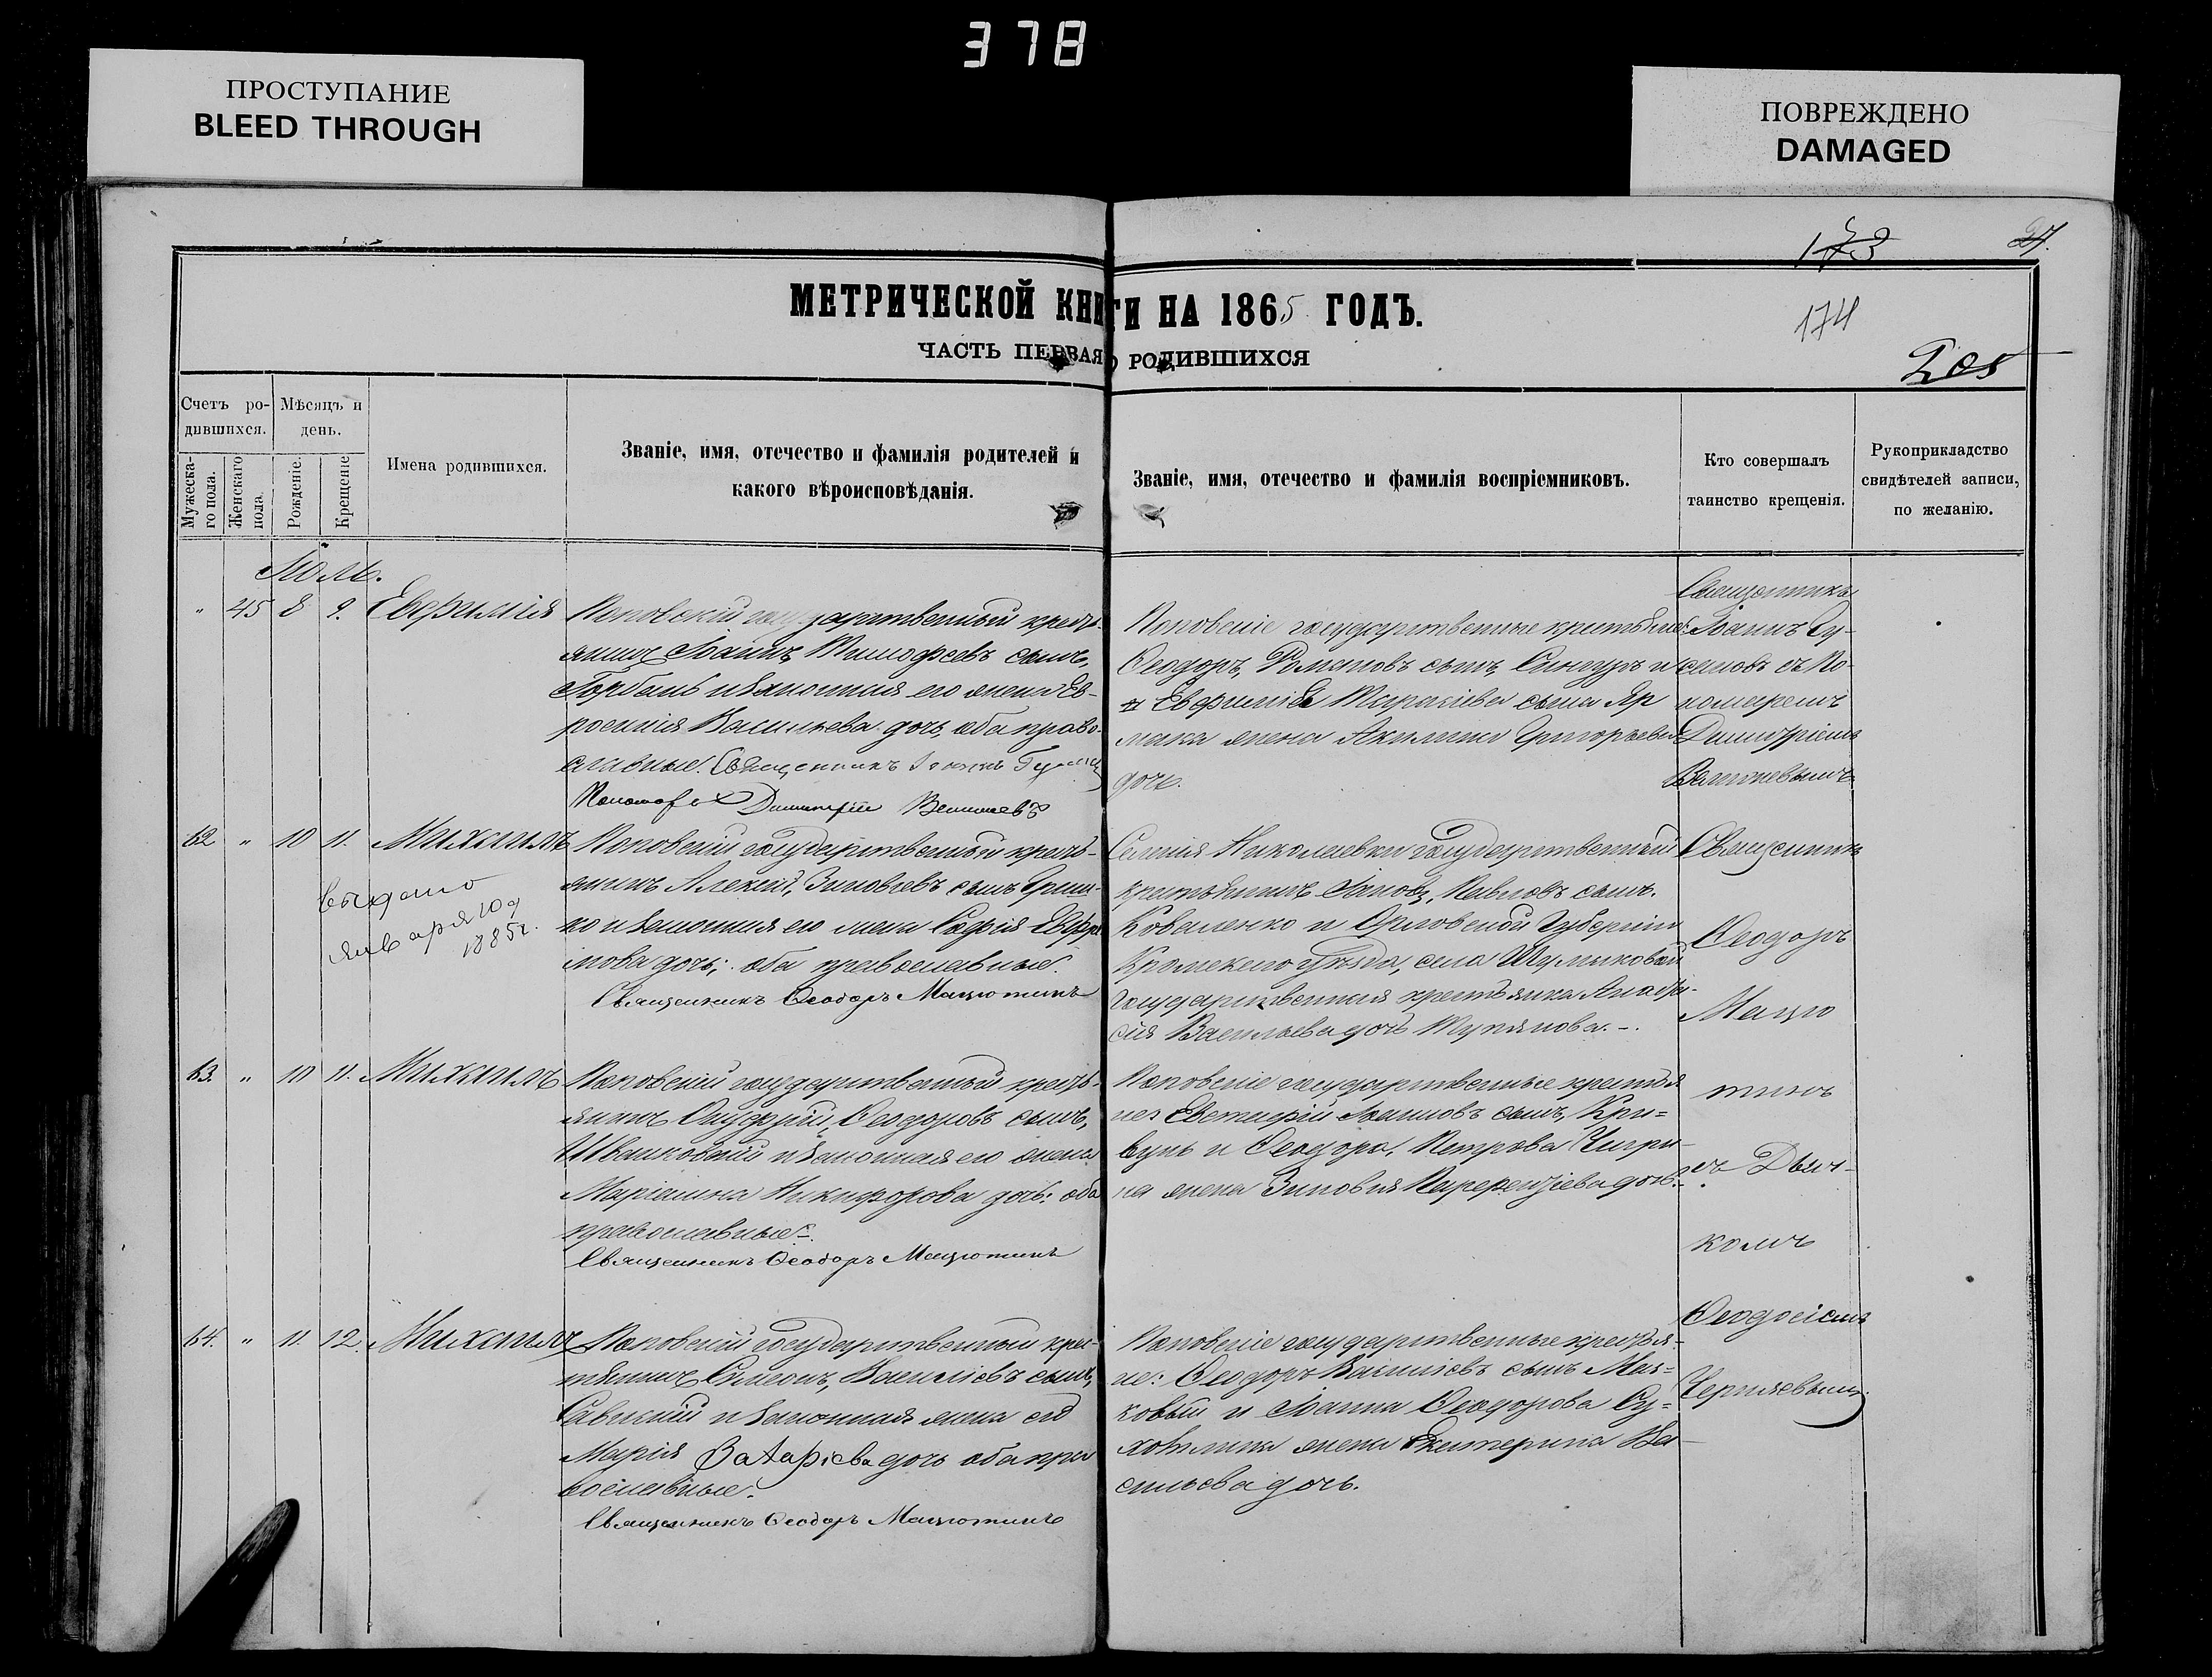 378
ПРОСТУПАНИЕ
BLEED THROUGH
ПОВРЕЖДЕНО
DAMAGED
173
27.
МЕТРИЧЕСКОЙ КНИГИ НА 1865 ГОДЪ.
174
ЧАСТЬ ПЕРВАЯ О РОДИВШИХСЯ
205
Счетъ ро-
дившихся.
Мѣсяцъ и
день.
Мужеска-
го пола.
Женскаго
пола.
Рожденіе.
Крещеніе
Имена родившихся.
Званіе, имя, отечество и фамилія родителей и
какого вѣроисповѣданія.
Званіе, имя, отечество и фамилія воспріемниковъ.
Кто совершалъ
таинство крещенія.
Рукоприкладство
свидѣтелей записи,
по желанію.
Іюль.
" 45 8 9. Евфимія
Поповскій государственный кресть-
янинъ Іоаннъ Тимофеевъ сынъ,
Горбань и законная его жена Ев-
Васильева дочь, оба право-
славные. Священникъ Іоаннъ
Пономарь Димитрій
Поповскіе государственные крестьяне:
Феодоръ, Романовъ сынъ, и
Тарасіева сына
жена Григорьева
дочь.
Священникъ
Іоаннъ Гу-
съ По-
номаремъ
Димитріемъ
62 " 10 11. Михаилъ
выдано
января 10 д
1885 г.
Поповскій государственный кресть-
янинъ Алексій, Зиновіевъ сынъ Гриш-
ко и законная его жена Софія Ефре-
мова дочь; оба православные.
Священникъ Феодоръ Мацютинъ
Селенія Николаевки государственный
крестьянинъ Іаковъ, Павловъ сынъ.
Коваленко и Орловской Губерніи
Кромскаго уѣзда, села
государственная крестьянка Анаста-
сія Васильева дочь
Священникъ
Феодоръ
Мацю
тинъ
съ Дьяч-
комъ
Феодосіемъ
Черняевымъ
63. " 10 11. Михаилъ
Поповскій государственный кресть-
янинъ Онуфрій, Феодоровъ сынъ,
Ивашковскій и законная его жена
Маріанна Никифорова дочь: оба
православные.
Священникъ Феодоръ Мацютинъ
Поповскіе государственные крестья
не: Евстафій Іоанновъ сынъ, Кри-
вунъ и Феодора, Петрова Чигри-
на жена Зиновія дочь.
64. " 11. 12. Михаилъ
Поповскій государственный крес-
тьянинъ Симеонъ, Василіевъ сынъ,
Савицкій и законная жена его
Марія Захаріева дочь оба пра
вославные.
Священникъ Феодоръ Мацютинъ
Поповскіе государственные крестья-
не: Феодоръ Василіевъ сынъ
и Іоанна Феодорова Су-
жена Екатерина Ва-
сильева дочь.